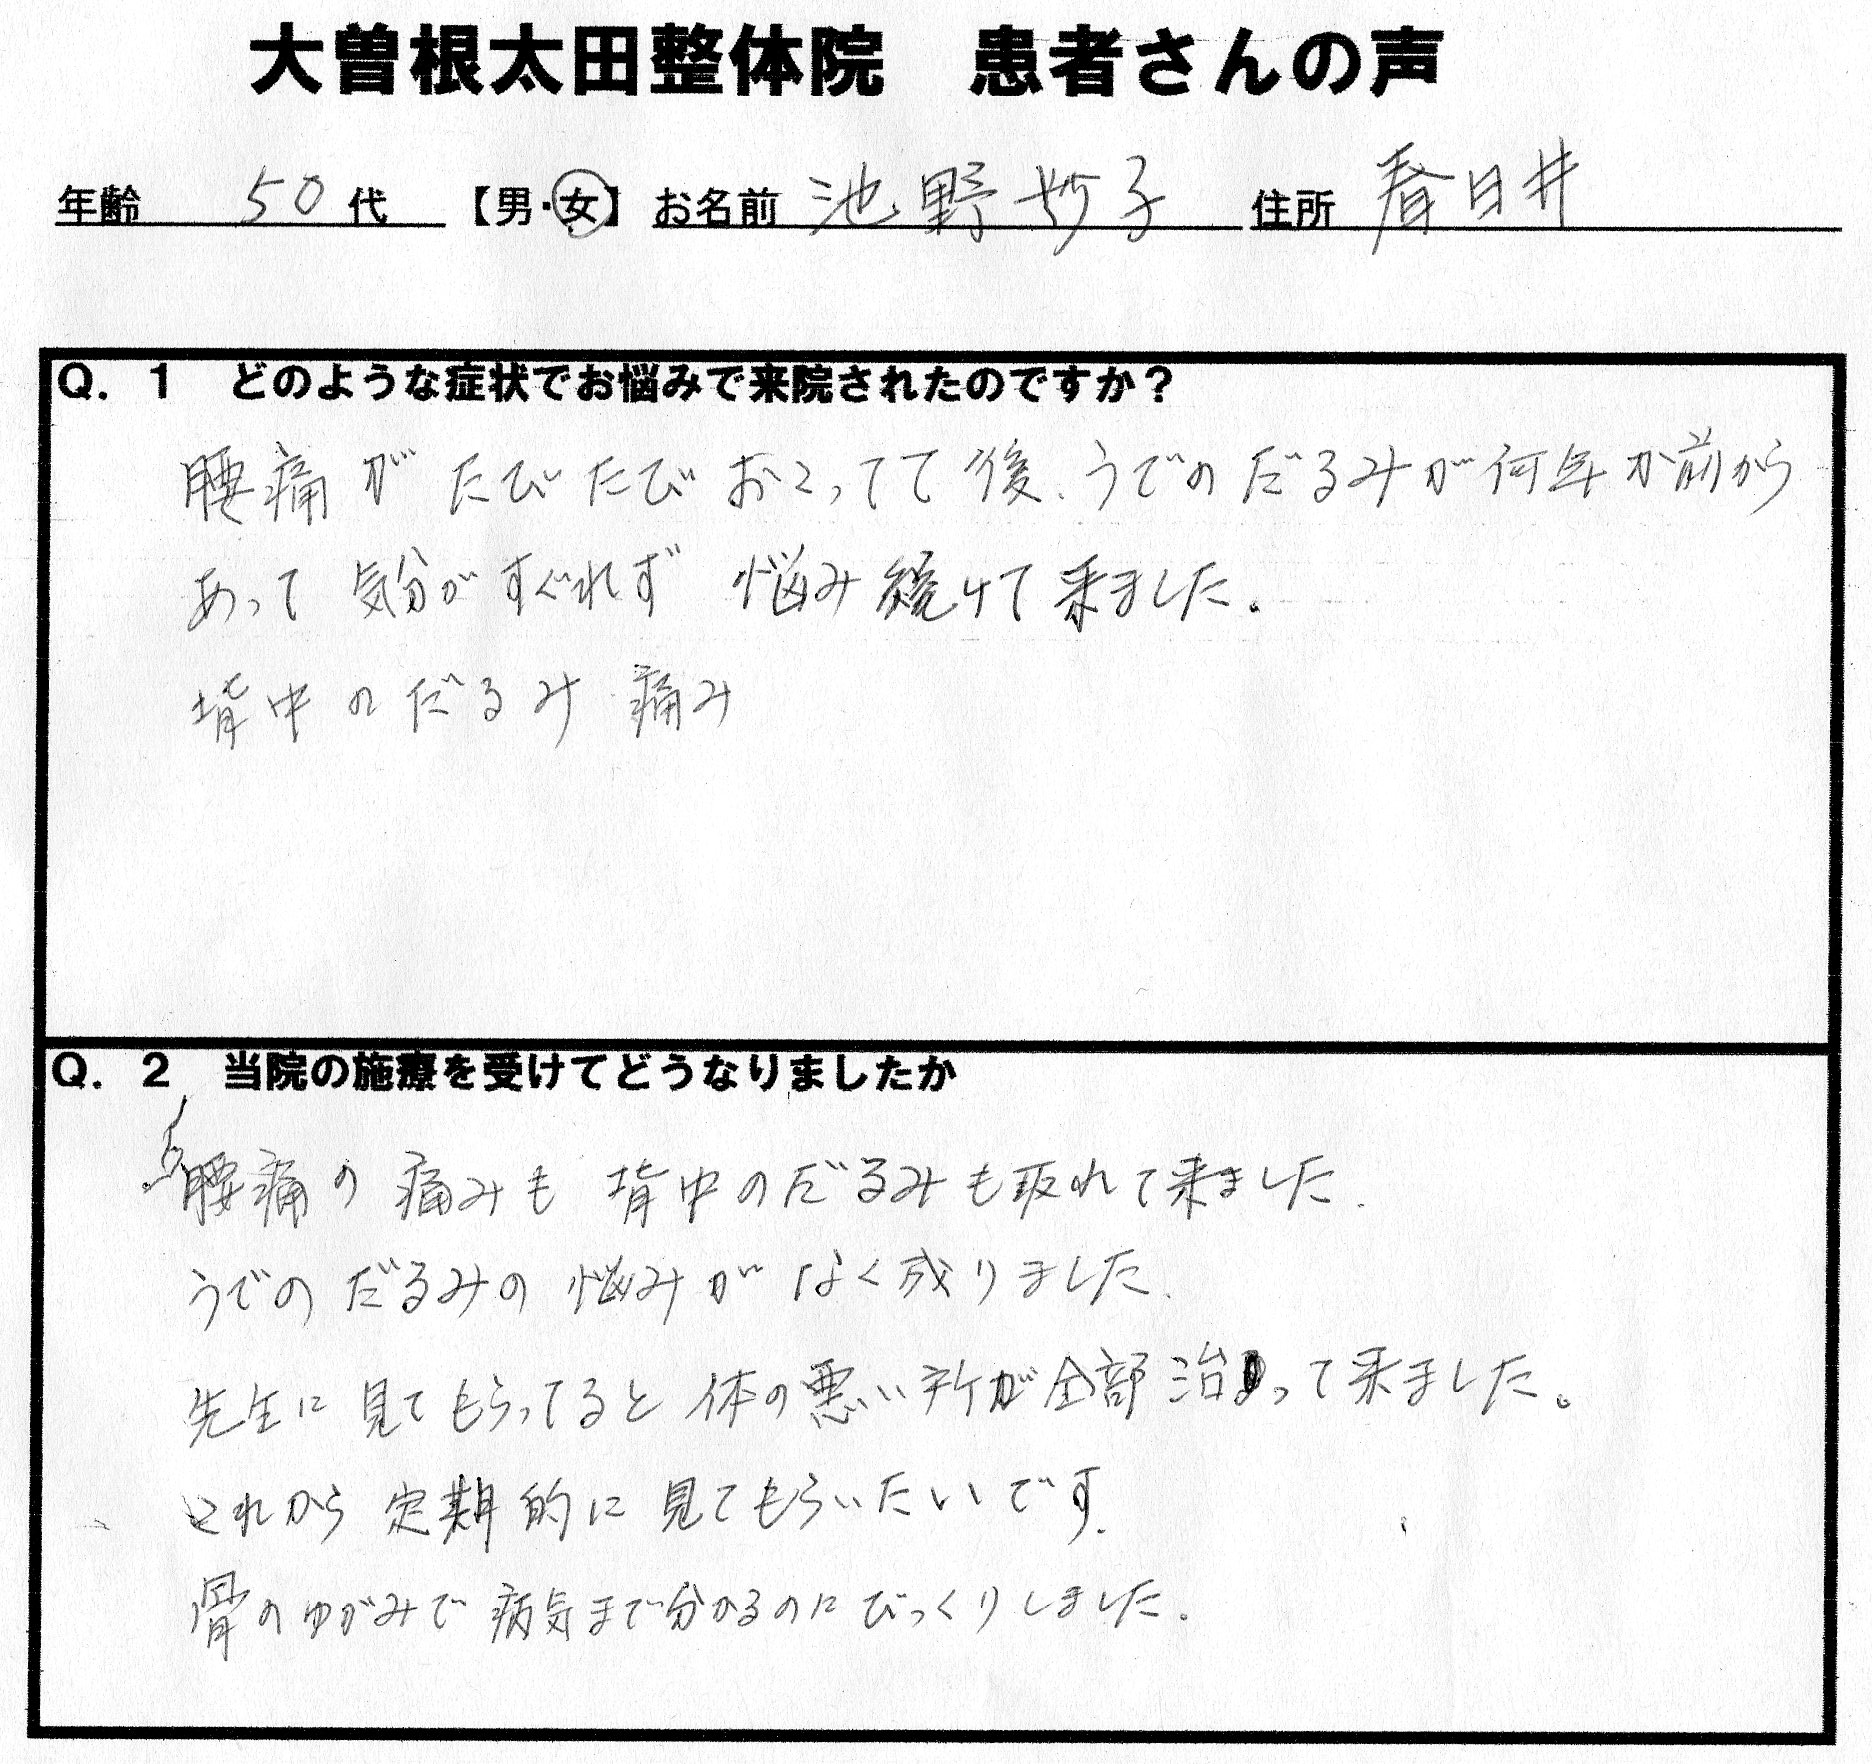 大曽根太田整体院　患者さんの声
年齢 50代 【男・女】 お名前 池野妙子 住所 春日井
Q．1　どのような症状でお悩みで来院されたのですか？
腰痛が たびたび おこってて 後、うでの だるみが何年か前から
あって 気分がすぐれず 悩み続けて来ました。
背中のだるみ 痛み
Q．2　当院の施療を受けてどうなりましたか
腰痛の 痛みも 背中のだるみも取れて来ました.
うでの だるみの 悩みが なく成りました.
先生に 見てもらってると 体の悪い所が全部治って来ました。
これから 定期的に 見てもらいたいです.
骨のゆがみで 病気まで分かるのにびっくりしました.